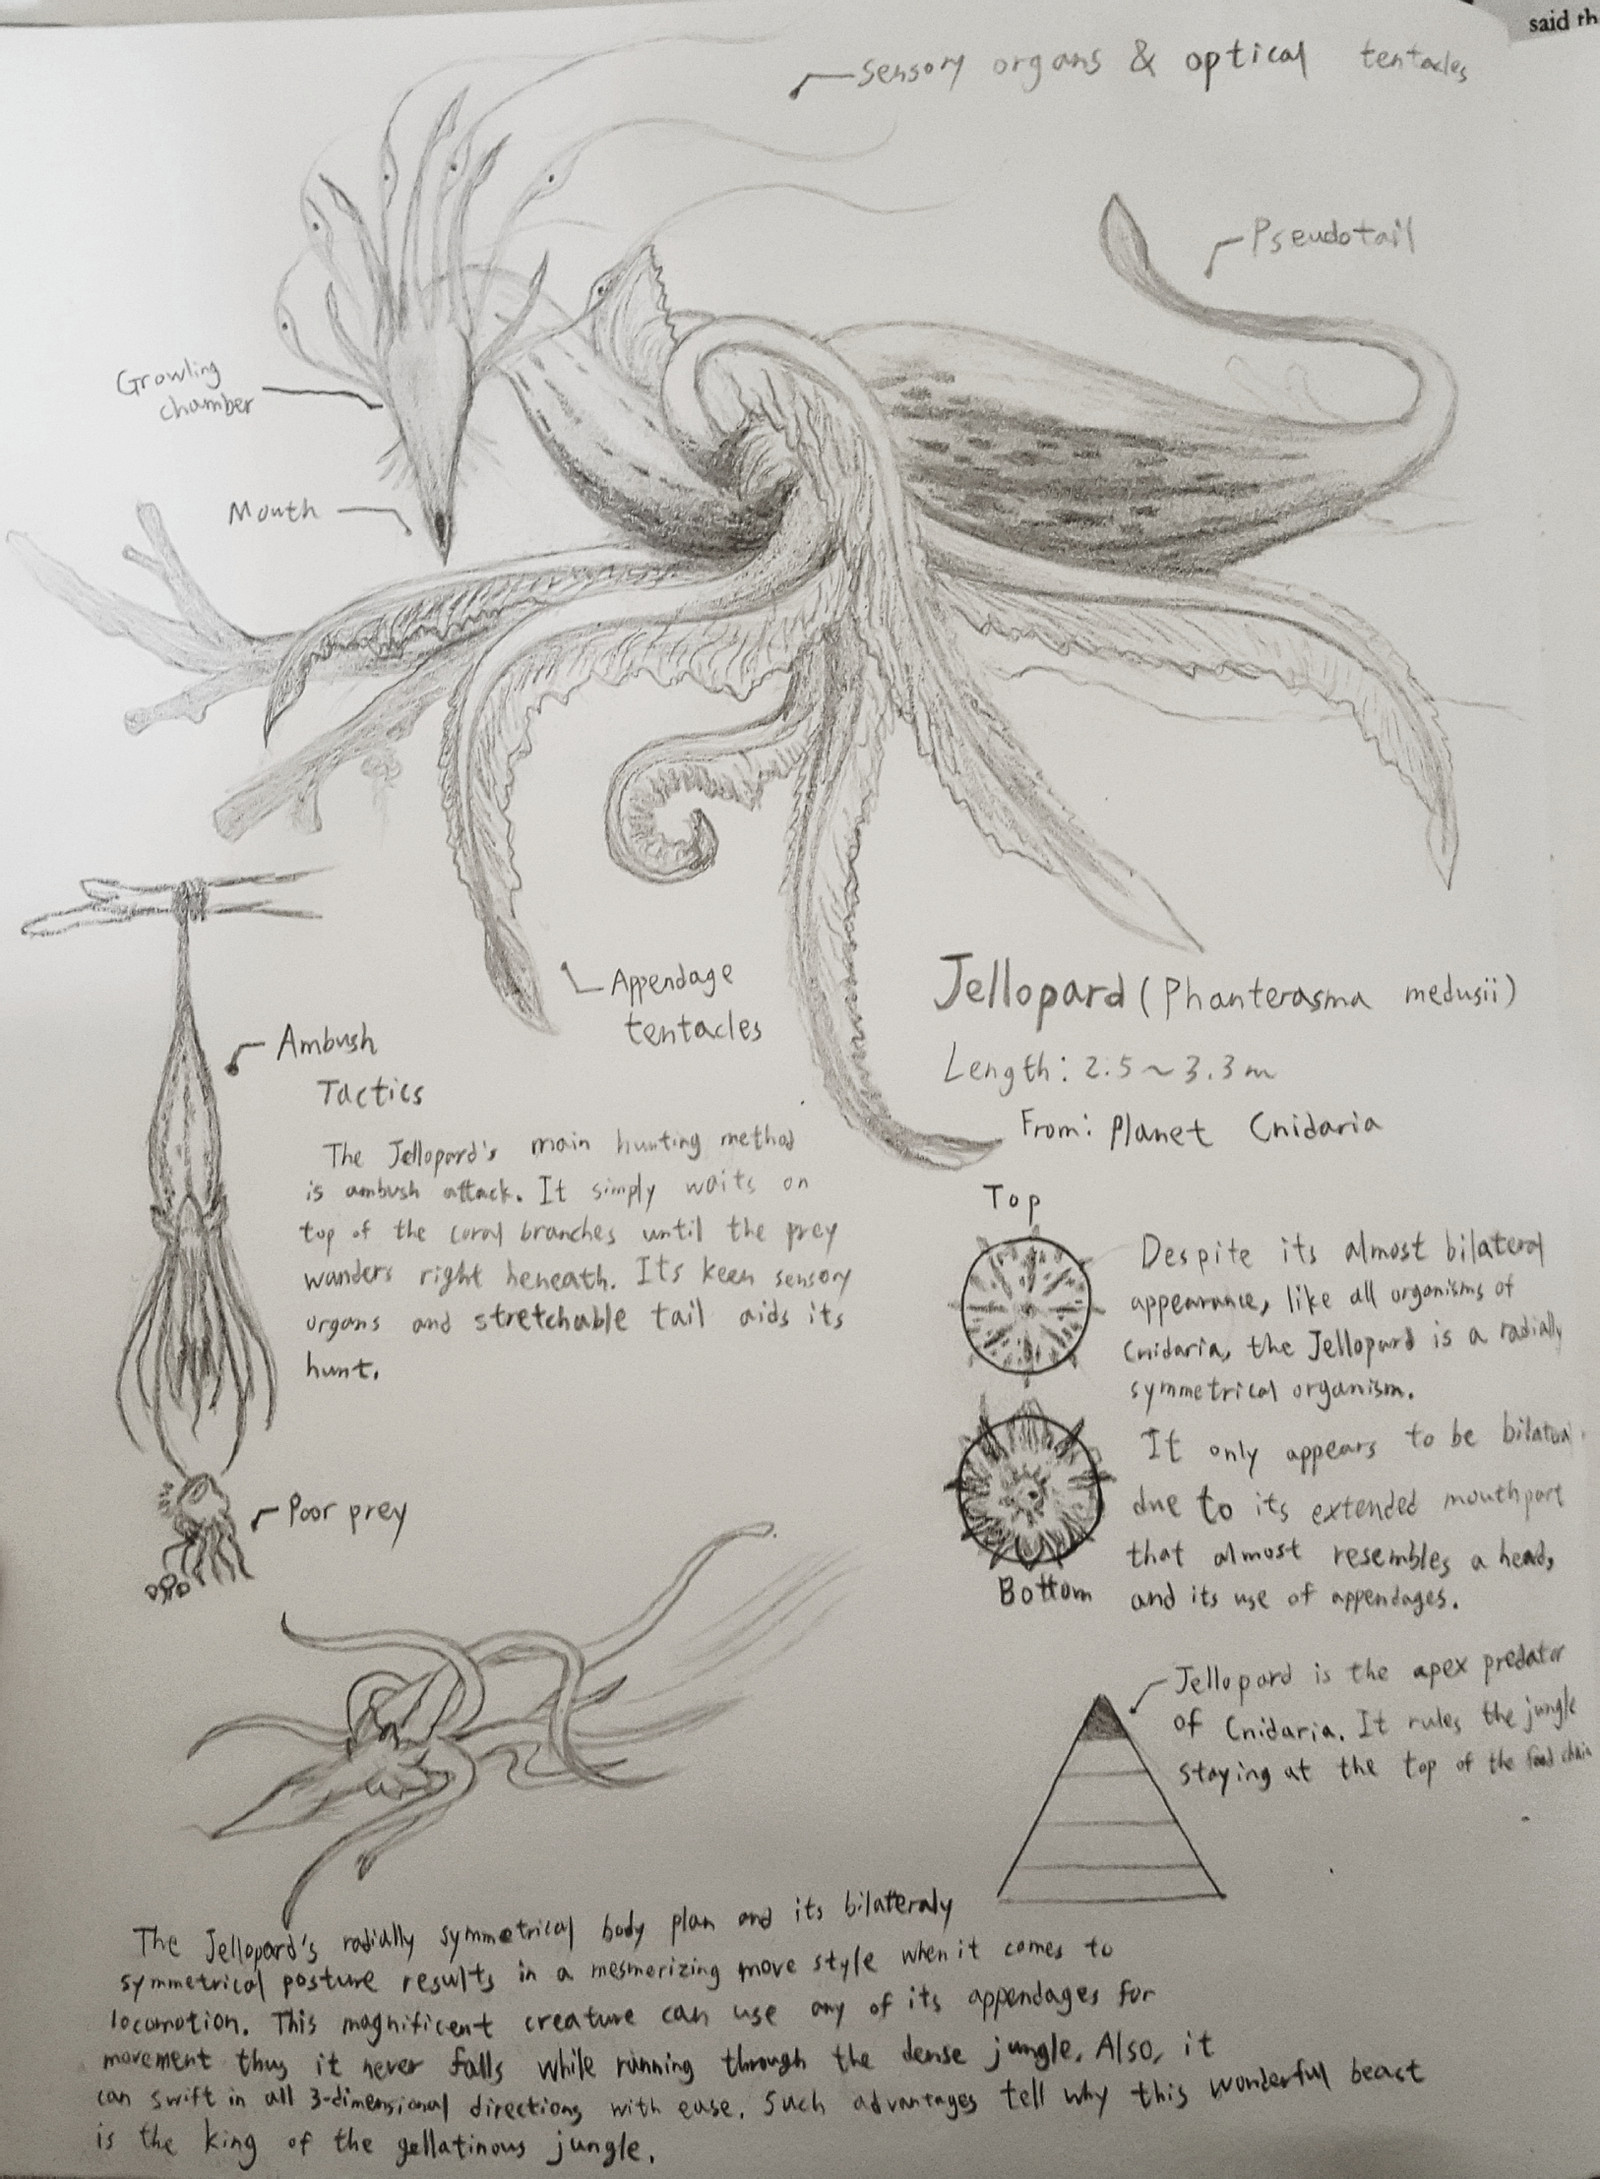 said rh
Sensory organs & optical tentacles
Pseudotail
Growling
chamber
Mouth
Appendage
tentacles
Jellopard (Phanterasma medusii)
Length: 2.5~3.3m
From: Planet Cnidaria
Ambush
Tactics
The Jellopard's main hunting method
is ambush attack. It simply waits on
top of the coral branches until the prey
wanders right beneath. Its keen sensory
organs and stretchable tail aids its
hunt.
Poor prey
Top
Bottom
Despite its almost bilateral
appearance, like all organisms of
Cnidaria, the Jellopard is a radially
symmetrical organism.
It only appears to be
due to its extended mouthpart
that almost resembles a head,
and its use of appendages.
Jellopard is the apex predator
of Cnidaria. It rules the jungle
staying at the top of the food chain
The Jellopard's radially symmetrical body plan and its bilateraly
symmetrical posture results in a mesmerizing move style when it comes to
locomotion. This magnificent creature can use any of its appendages for
movement thus it never falls while running through the dense jungle. Also, it
can swift in all 3-dimensional directions with ease. Such advantages tell why this wonderful beast
is the king of the gellatinous jungle.